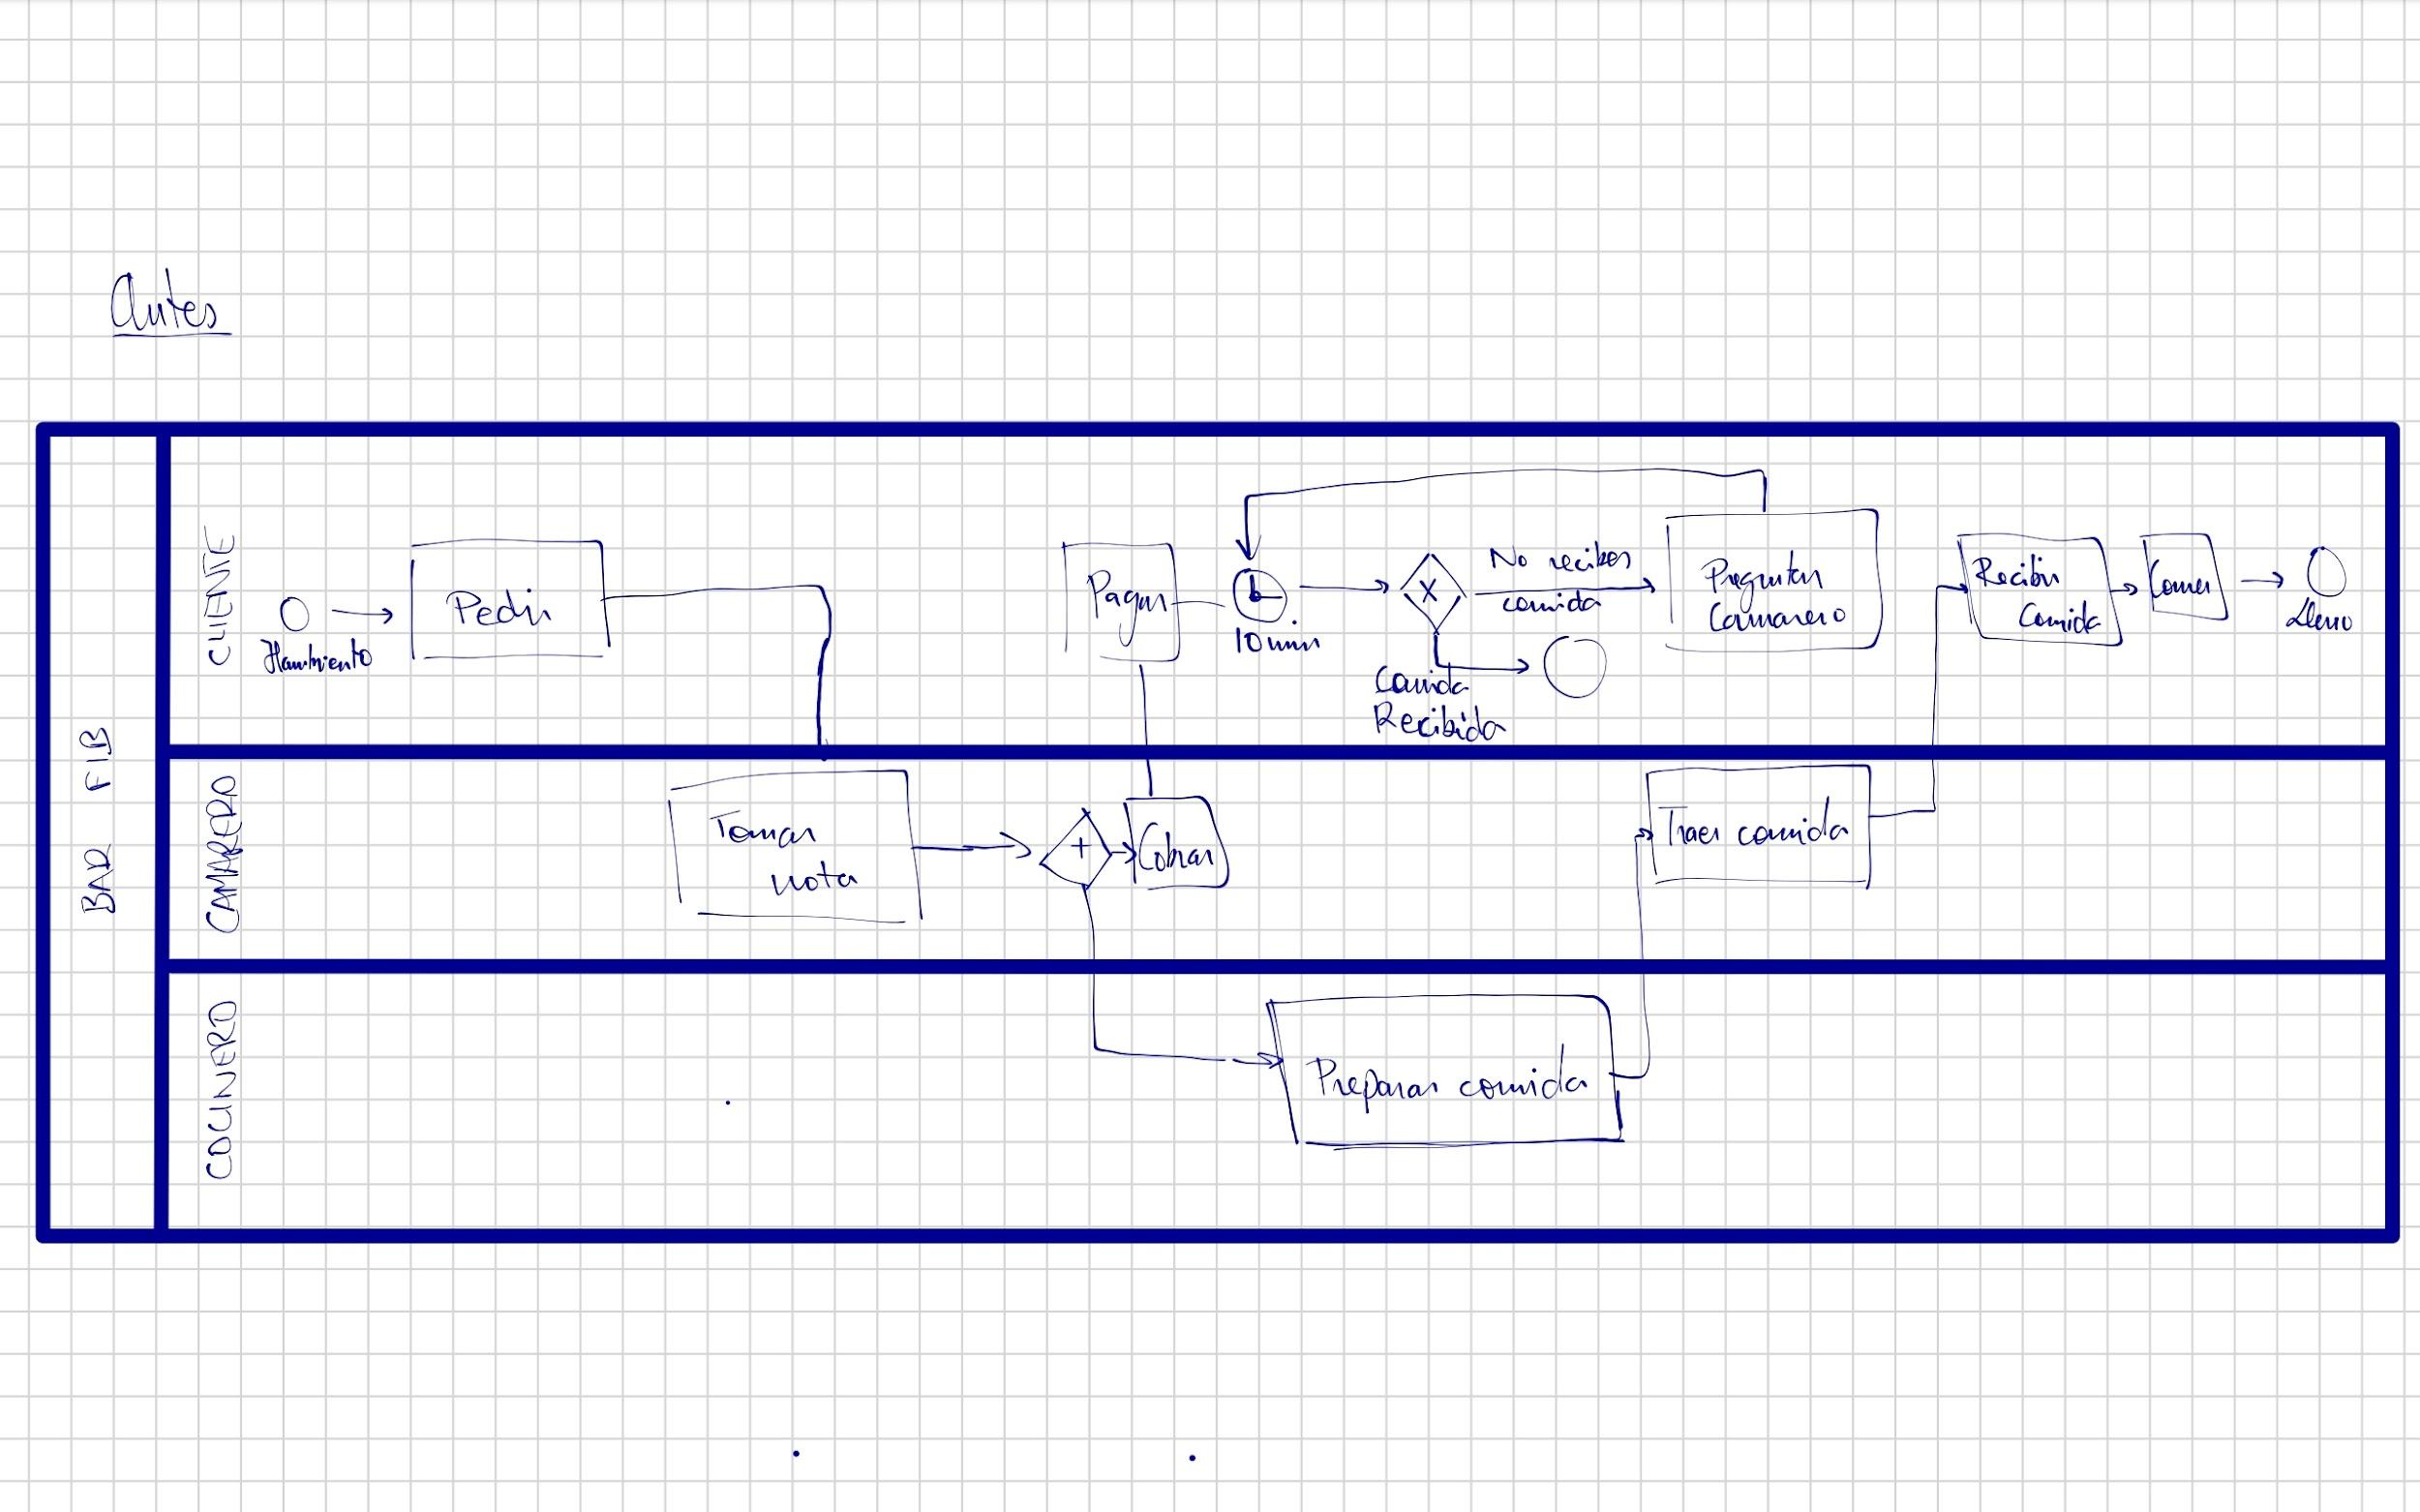 Antes
BAR FIB
CLIENTE
Hambriento
Pedir
Pagar
10 min
X
No recibes
comida
Comida
Recibida
Preguntar
Camarero
Recibir
Comida
Comer
Lleno
CAMARERO
Tomar
nota
+
Cobrar
Traer comida
COCINERO
Preparar comida